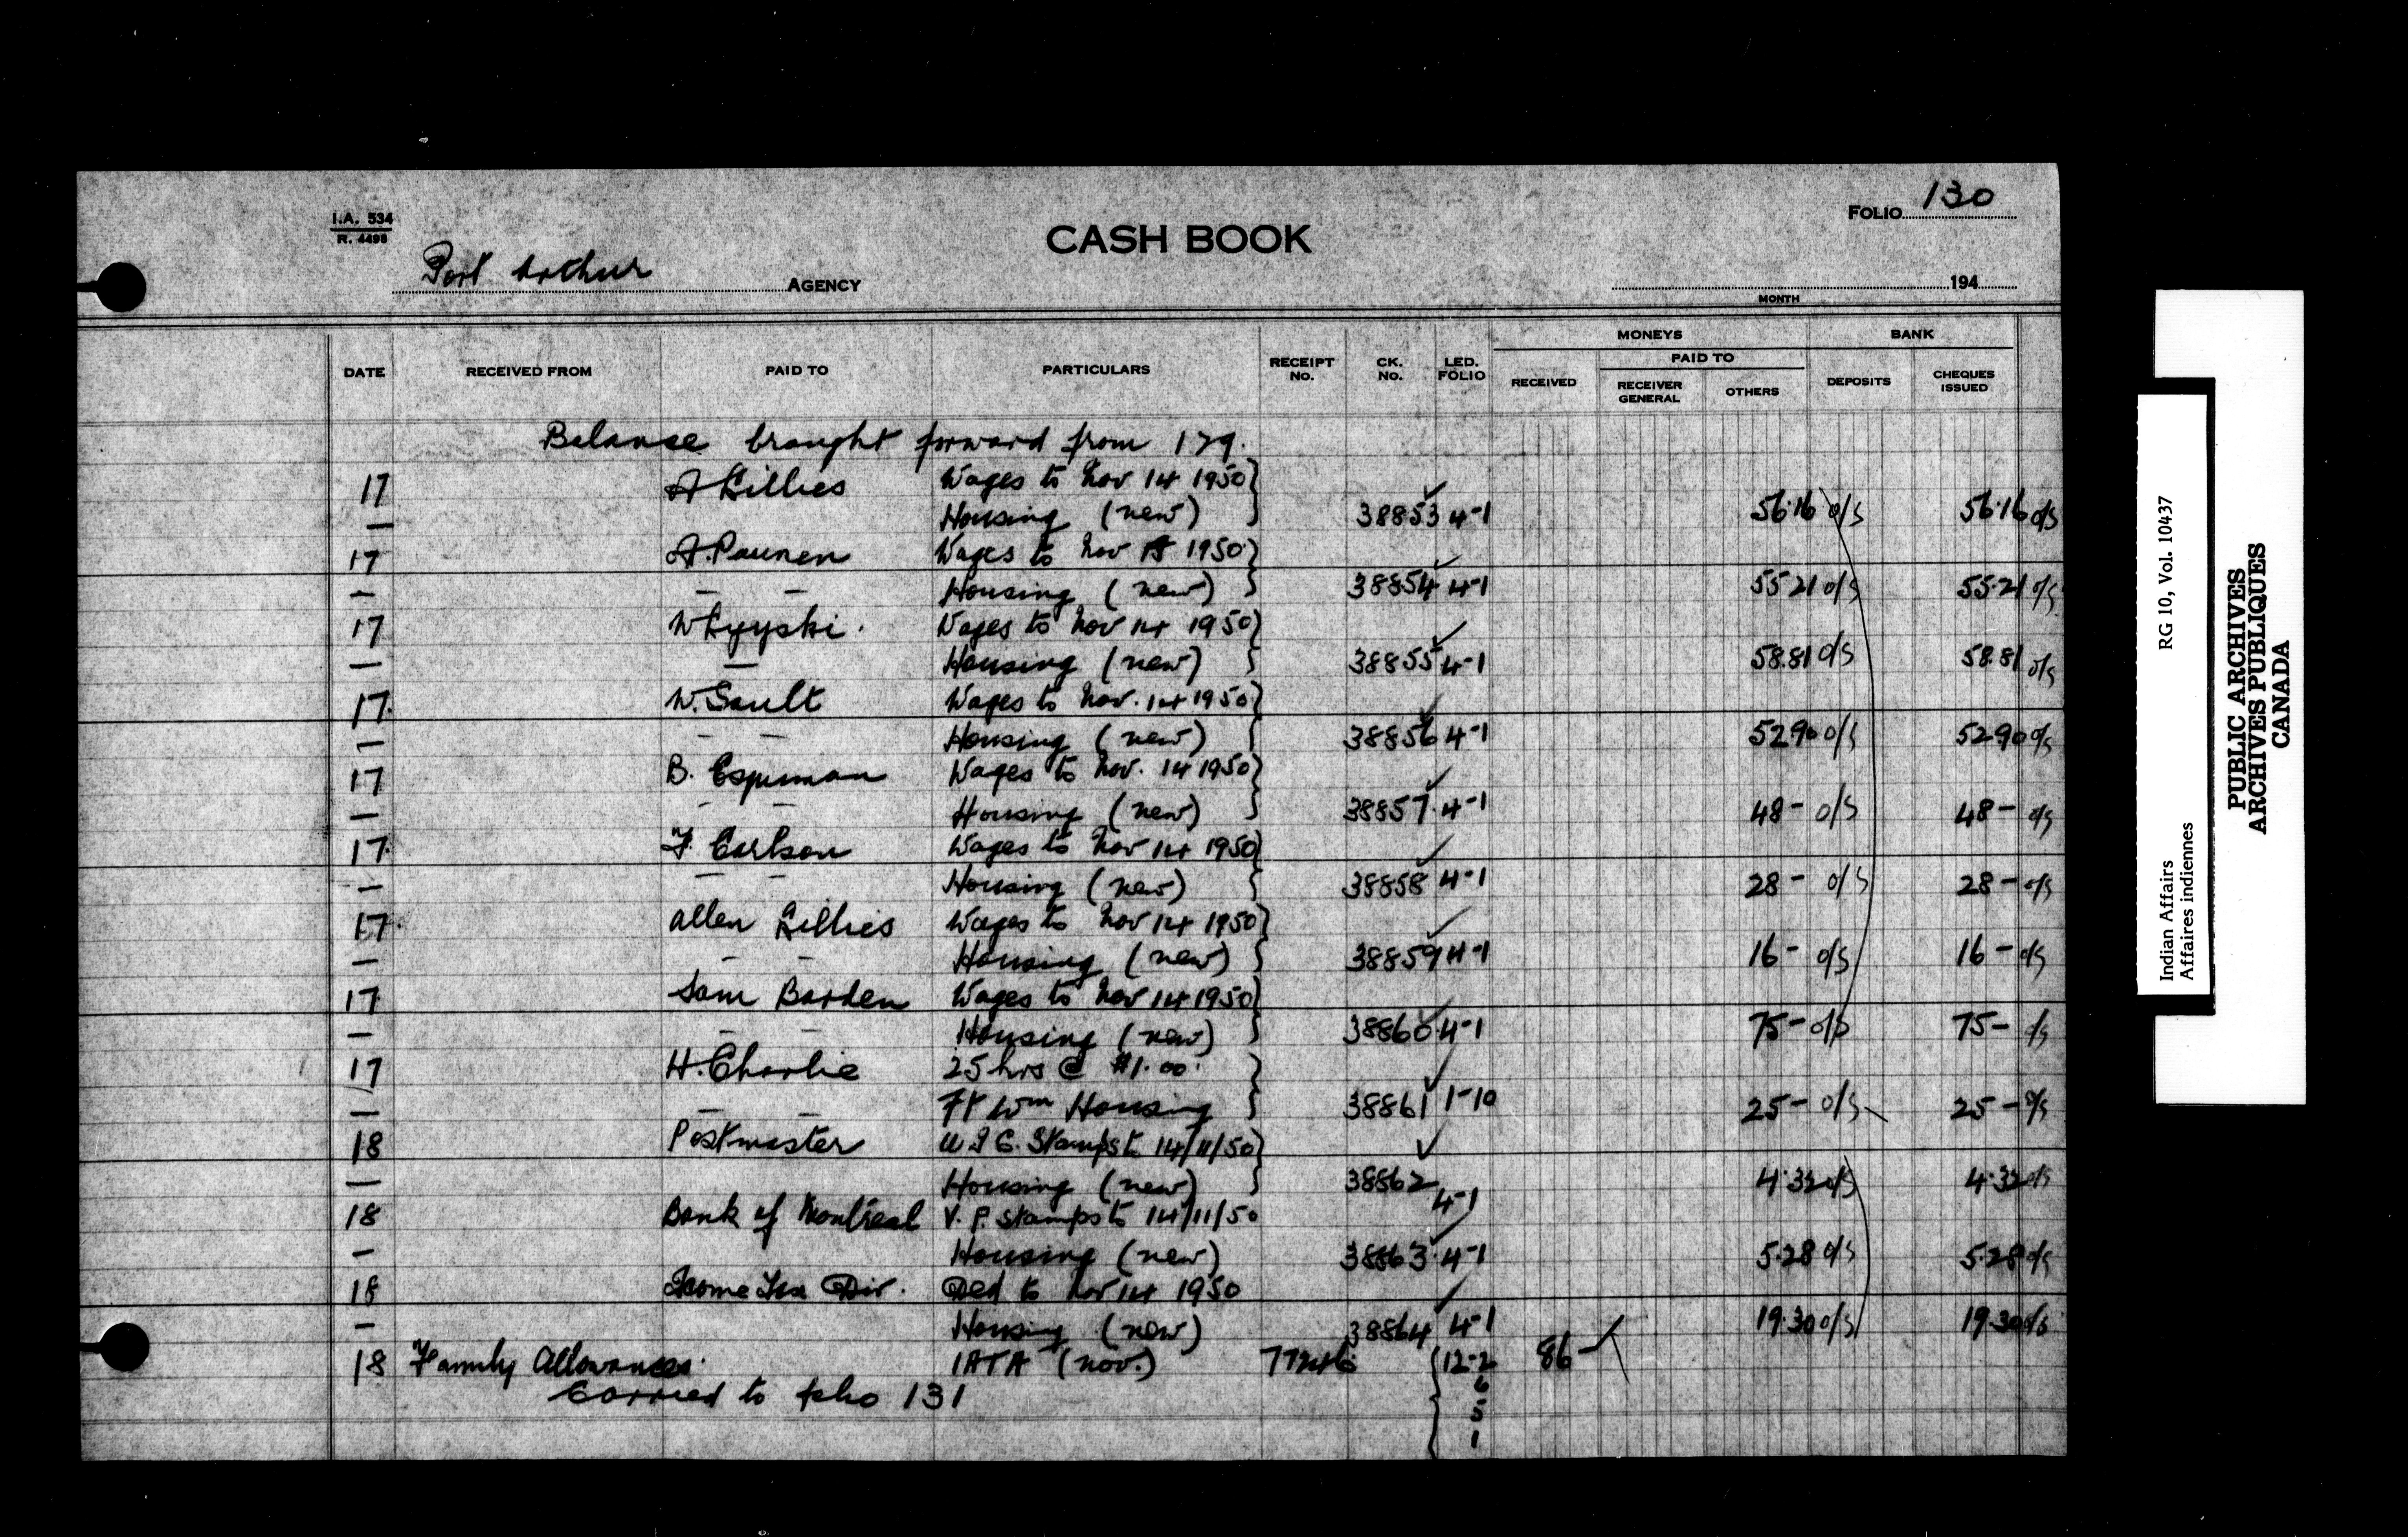 I.A. 534
R. 4498
FOLIO 130
CASH BOOK
Port Arthur AGENCY
MONTH 194
MONEYS BANK
PAID TO
DATE RECEIVED FROM PAID TO PARTICULARS RECEIPT No. CK. No. LED. FOLIO RECEIVED RECEIVER GENERAL OTHERS DEPOSITS CHEQUES ISSUED
Balance brought forward from 129.
17 A Gillies Wages to Nov 14 1950
— Housing (new) 38853 4-1 56.16 o/s 56.16 o/s
17 A. Paunen Wages to Nov 1950
— — — Housing (new) 38854 4-1 55 21 o/s 55.21 o/s
17 W Wages to Nov 14 1950
— — Housing (new) 38855 4-1 58.81 o/s 58.81 o/s
17 W. Sault Wages to Nov. 14 1950
— — — Housing (new) 38856 4-1 52 90 o/s 52 90 o/s
17 B. Wages to Nov. 14 1950
— — — Housing (new) 38857 4-1 48 - o/s 48 - o/s
17 F. Carlson Wages to Nov 14 1950
— — — Housing (new) 38858 4-1 28 - o/s 28 - o/s
17 Allen Gillies Wages to Nov 14 1950
— — — Housing (new) 38859 4-1 16 - o/s 16 - o/s
17 Sam Barden Wages to Nov 14 1950
— — — Housing (new) 38860 4-1 75 - o/s 75 - o/s
17 H. Charlie 25 hrs @ $1.00
— — — Ft Wm Housing 38861 1-10 25 - o/s 25 - o/s
18 Postmaster U I C. Stamps to 14/11/50
— Housing (new) 38862 4-1 4.32 o/s 4.32 o/s
18 Bank of Montreal V. P. Stamps to 14/11/50
— Housing (new) 38863 4-1 5.28 o/s 5.28 o/s
18 Income Tax Div. Ded to Nov 14 1950
— Housing (new) 38864 4-1 19.30 o/s 19.30 o/s
18 Family Allowances (Nov.) 12-2 86 -
6
Carried to folio 131
5
1
Indian Affairs RG 10, Vol. 10437
Affaires indiennes
PUBLIC ARCHIVES
ARCHIVES PUBLIQUES
CANADA